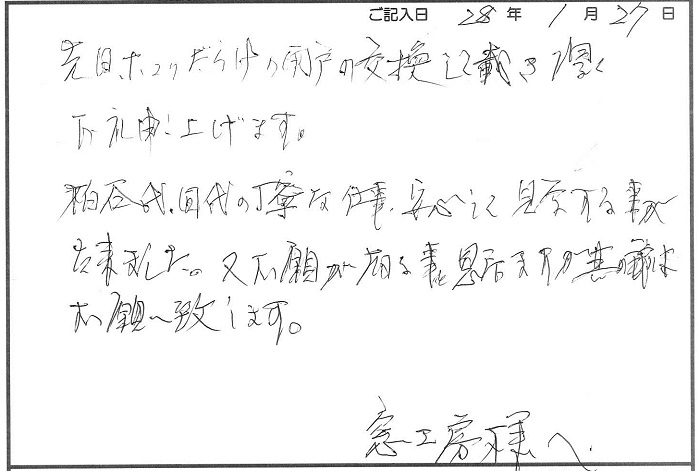 ご記入日 28 年 1 月 27 日
先日ホコリだらけの雨戸の交換して戴き厚く
お礼申し上げます。
粕谷氏、田代の丁寧な仕事、安心して見学する事が
出来ました。又お願が有る事と思いますが其の節は
お願い致します。
窓工房様へ